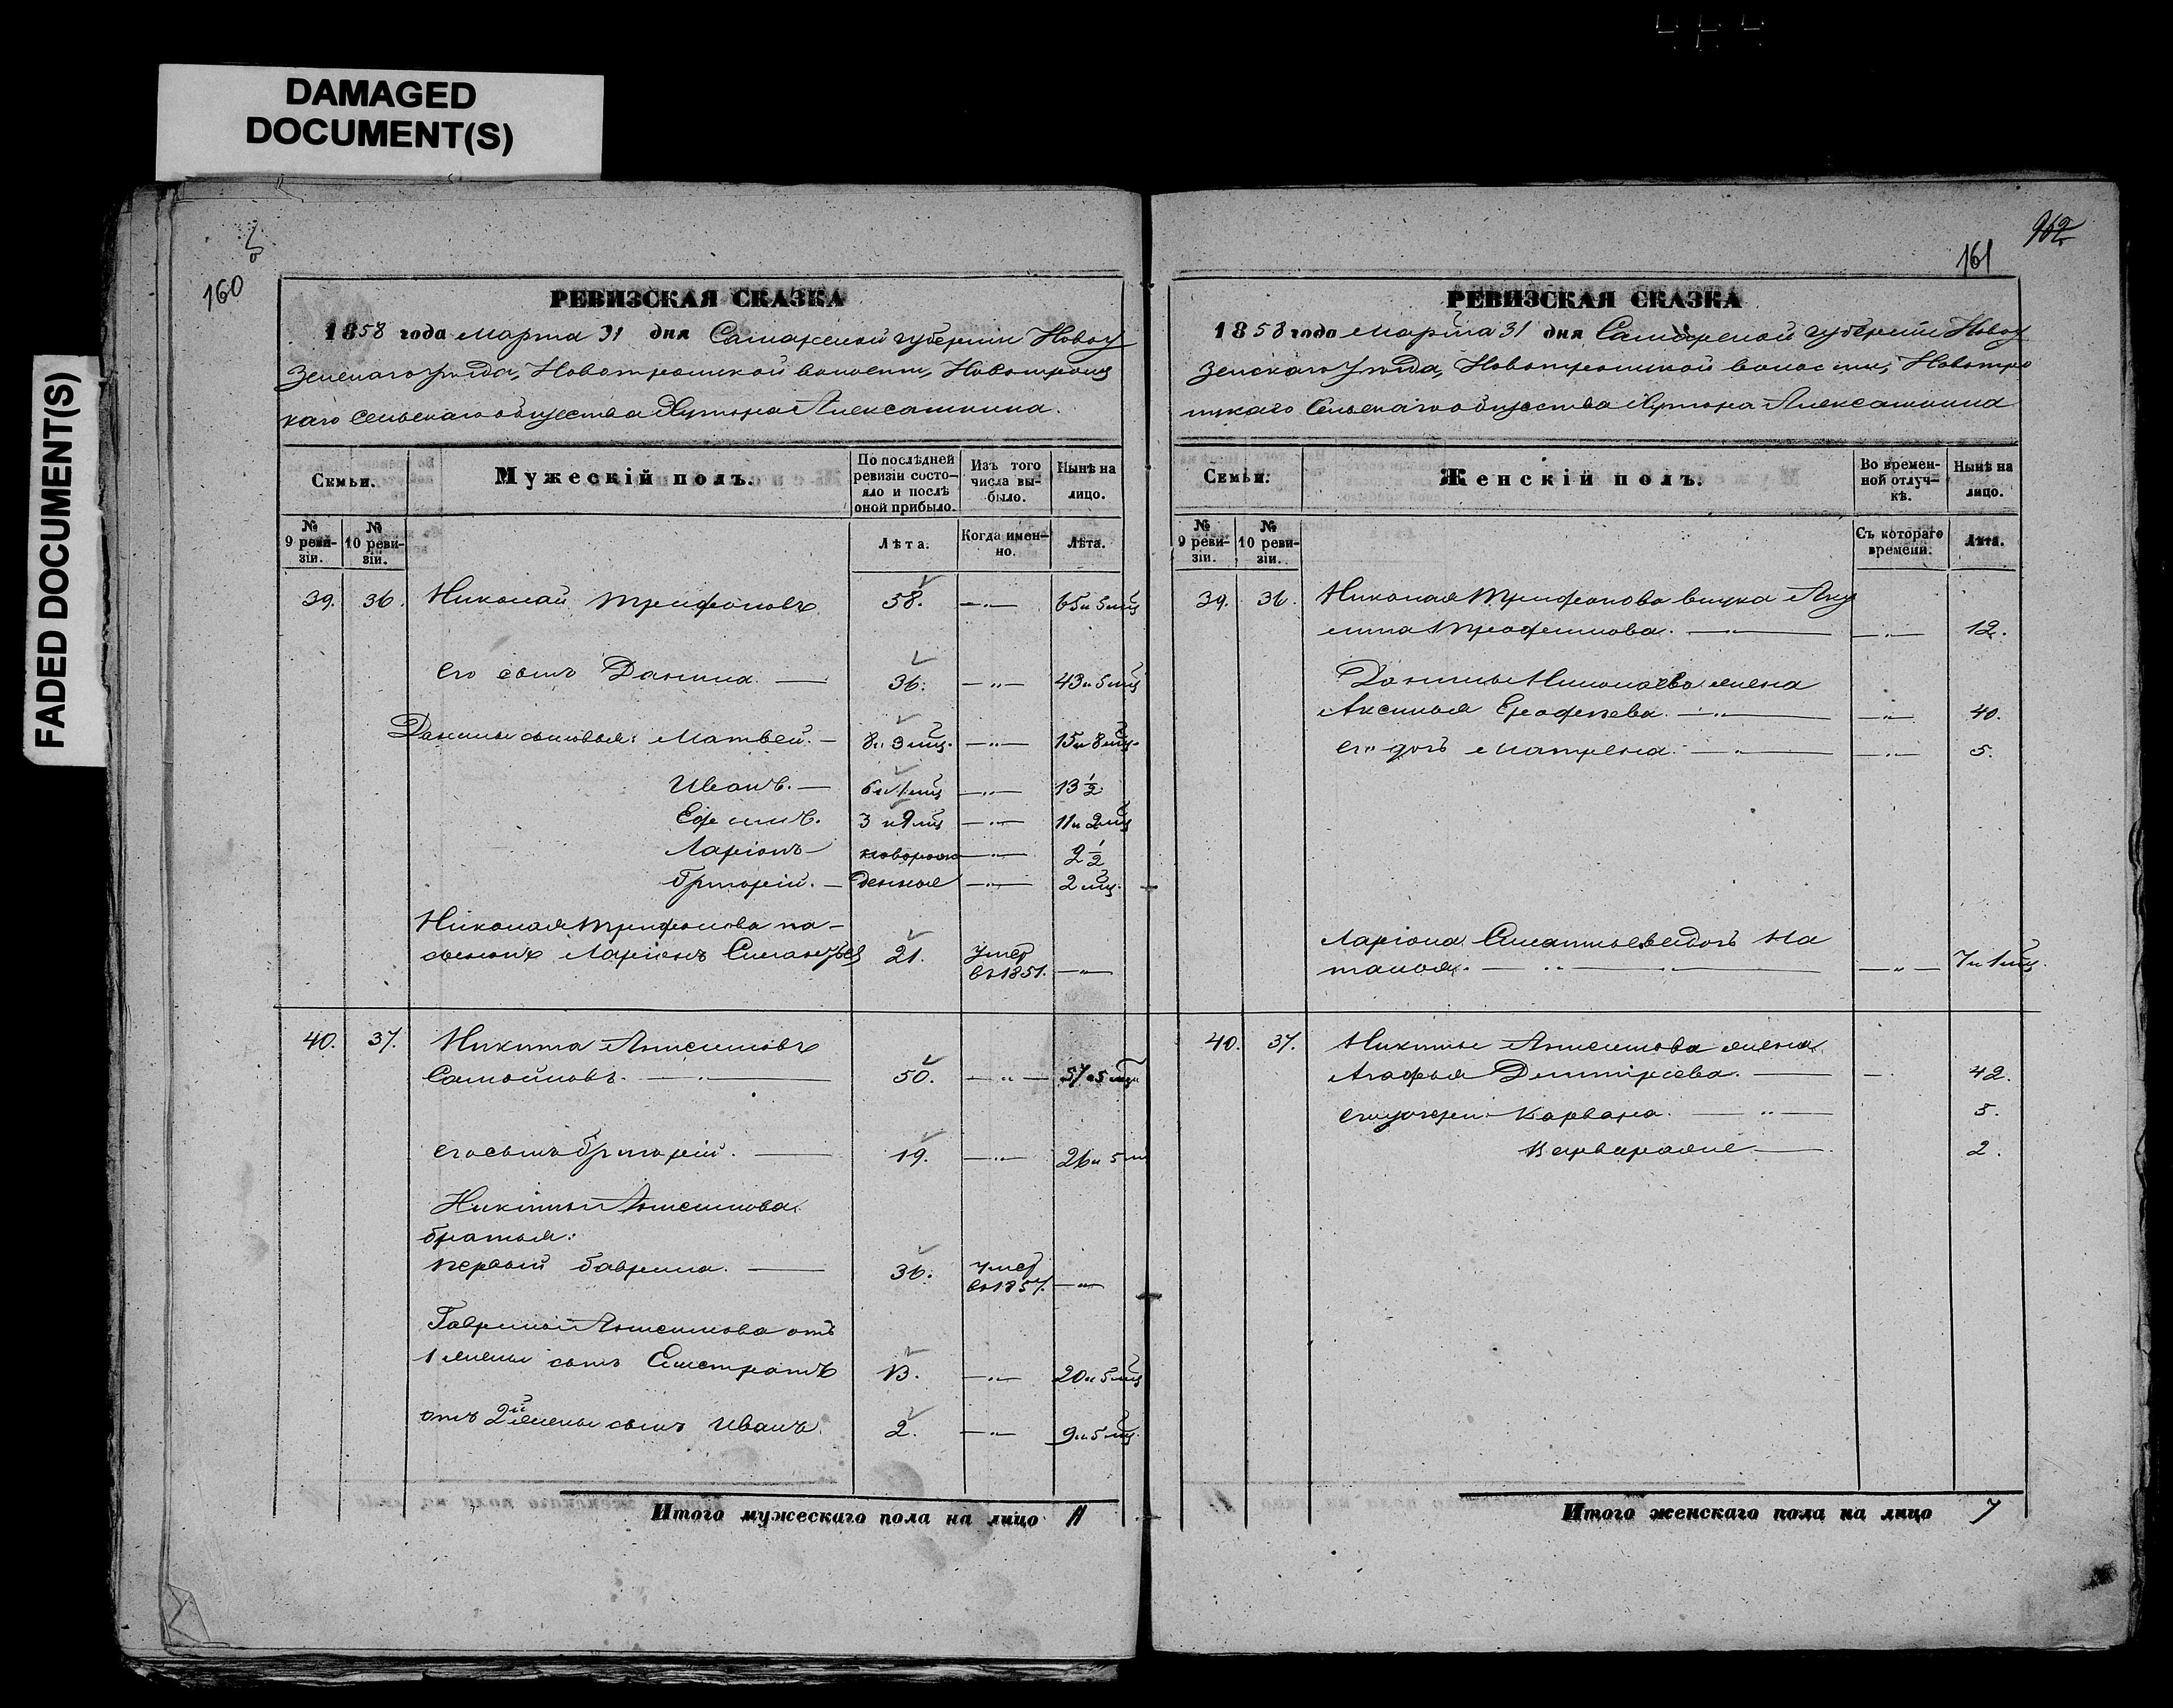 DAMAGED
DOCUMENT(S)
FADED DOCUMENT(S)
160
РЕВИЗСКАЯ СКАЗКА
1858 года Марта 31 дня Самарской губерніи Новоу
зенскаго уѣзда, Новотроицкой волости, Новотроиц
каго сельскаго общества Хутора Алексашкина.
Семьи.
Мужескій полъ.
По послѣдней ревизіи состо-яло и послѣ оной прибыло.
Изъ того числа вы-было.
Нынѣ на лицо.
№ 9 реви-зіи.
№ 10 реви-зіи.
Лѣта.
Когда имен-но.
Лѣта.
39. 36. Николай Трифоновъ 58. —"— 65 и 5 мц
его сынъ Данила. — 36. —"— 43 и 5 мц
Данилы сыновья: Матвей. — 8 и 3 мц. —"— 15 и 8 мц.
Иванъ. — 6 и 1 мц —"— 13 1/2
Ефимъ. 3 и 9 мц —"— 11 и 2 мц
Ларіонъ новорож —"— 2 1/2
Григорій. — денные —"— 2 мц.
Николая Трифонова па-
сынокъ Ларіонъ 21. умер въ 1851. —"—
40. 37. Никита Анисимовъ
Самойловъ. — 50. —"— 57 и 5 мц
его сынъ Григорій. — 19. —"— 26 и 5 м
Никиты Анисимова
братья:
первый Гаврила. — 36. умер въ 1857. —"—
Гаврилы Анисимова отъ
1 жены сынъ Елистратъ 13. —"— 20 и 5 мц
отъ 2й жены сынъ Иванъ. 2. —"— 9 и 5 мц.
Итого мужескаго пола на лицо 11
962
161
РЕВИЗСКАЯ СКАЗКА
1858 года Марта 31 дня Самарской губерніи Новоу
зенскаго уѣзда, Новотроицкой волости, Новотро
ицкаго Сельскаго общества Хутора Алексашкина
Семьи.
Женскій полъ.
Во времен-ной отлуч-кѣ.
Нынѣ на лицо.
№ 9 реви-зіи.
№ 10 реви-зіи.
Съ котораго времени.
Лѣта.
39. 36. Николая Трифонова внучка Аку
лина —"— —"— 12.
Данилы Николаева жена
Аксинья Ерофеева. —"— —"— 40.
его дочь Матрена. —"— —"— 5.
Ларіона дочь На
талья. —"— —"— 7 и 1 мц.
40. 37. Никиты Анисимова жена
Агафья Дмитріева. — — 42.
его дочери — —"— 5.
2.
Итого женскаго пола на лицо 7